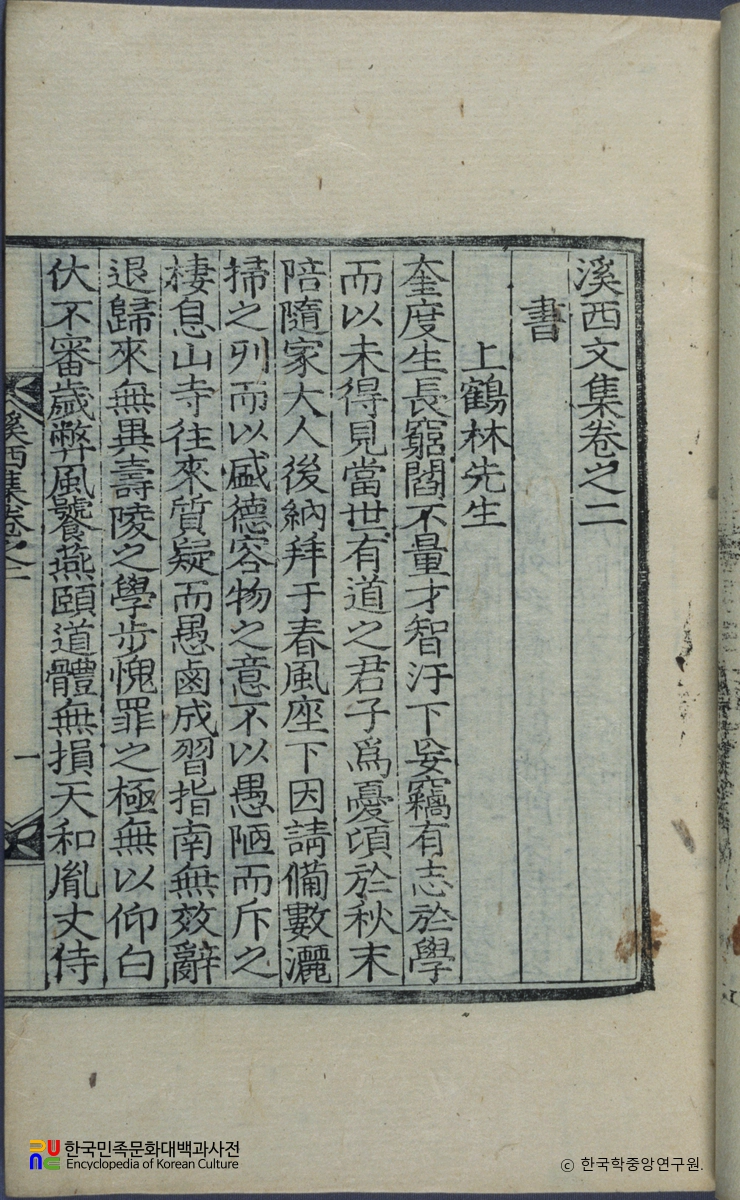 溪西文集卷之二
書
上鶴林先生
奎度生長窮閻不量才智汙下妄竊有志於學
而以未得見當世有道之君子爲憂頃於秋末
陪隨家大人後納拜于春風座下因請備數灑
掃之列而以盛德容物之意不以愚陋而斥之
棲息山寺往來質疑而愚鹵成習指南無效辭
退歸來無異壽陵之學步愧罪之極無以仰白
伏不審歲弊風饕燕頤道體無損天和胤丈侍
溪西集卷之二
一
한국민족문화대백과사전
Encyclopedia of Korean Culture
© 한국학중앙연구원.